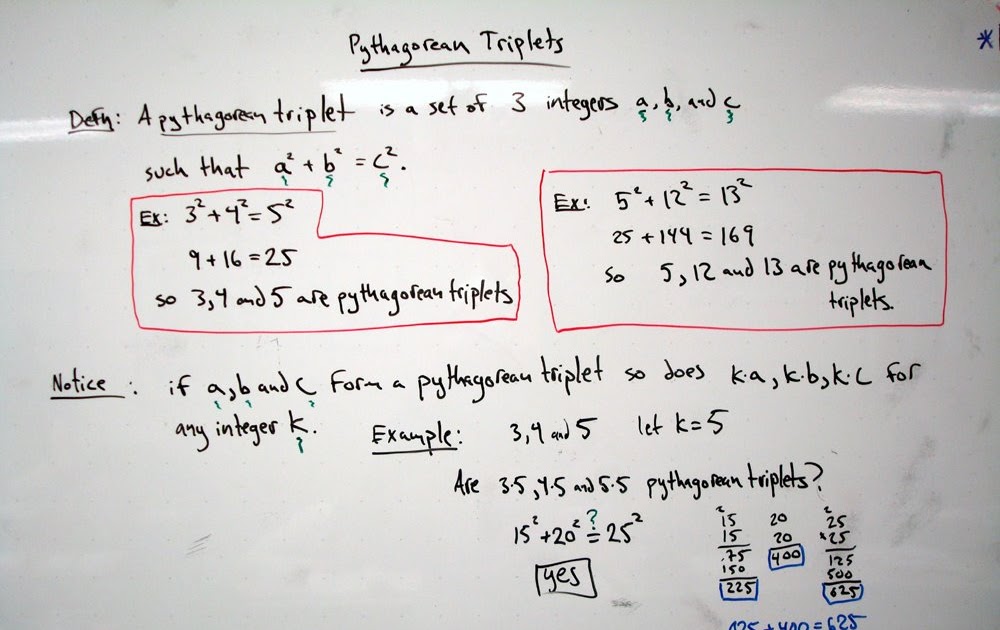 Pythagorean Triplets
*
Defn: A pythagorean triplet is a set of 3 integers a, b, and c
such that a² + b² = c².
Ex: 3² + 4² = 5²
9 + 16 = 25
so 3, 4 and 5 are pythagorean triplets
Ex: 5² + 12² = 13²
25 + 144 = 169
so 5, 12 and 13 are pythagorean
triplets.
Notice: if a, b and c form a pythagorean triplet so does k·a, k·b, k·c for
any integer k.
Example: 3, 4 and 5 let k = 5
Are 3·5, 4·5 and 5·5 pythagorean triplets?
15² + 20² ≟ 25²
yes
2
15
15
75
150
225
20
20
400
2
25
×25
125
500
625
+ 400 = 625